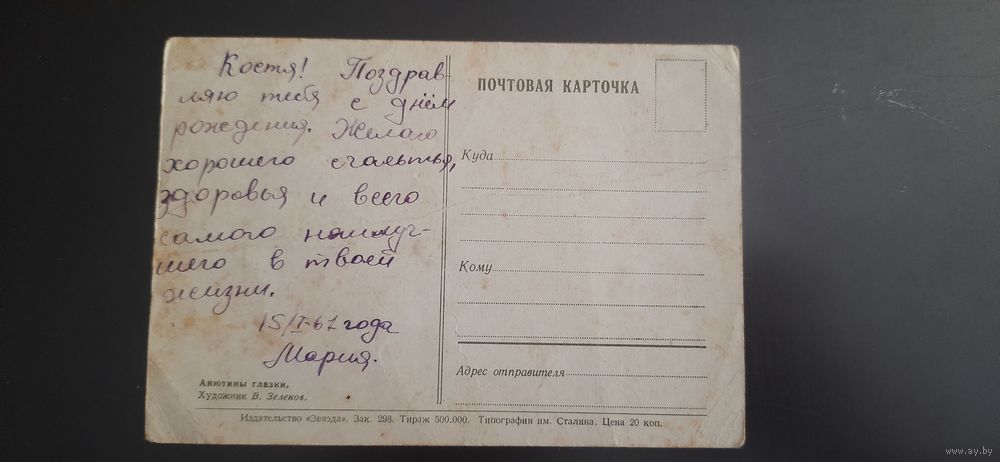 Костя! Поздрав-
ляю тебя с днём
рождения. Желаю
хорошего счастья,
здоровья и всего
самого наилуч-
шего в твоей
жизни.
15/I-61 года
Мария.
Анютины глазки.
Художник В. Зеленов.
ПОЧТОВАЯ КАРТОЧКА
Куда
Кому
Адрес отправителя
Издательство «Звязда». Зак. 298. Тираж 500.000. Типография им. Сталина. Цена 20 коп.
www.ay.by